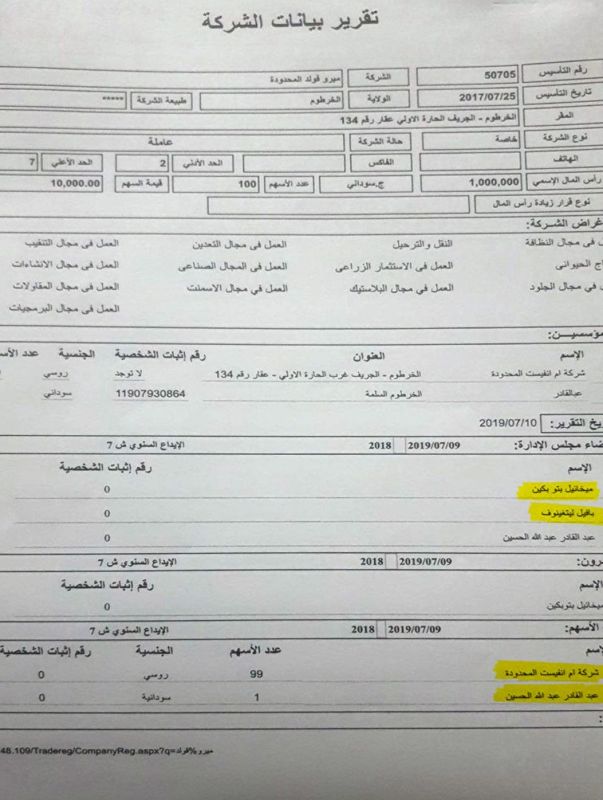 تقرير بيانات الشركة
رقم التأسيس 50705 الشركة ميرو قولد المحدودة
تاريخ التأسيس 2017/07/25 الولاية الخرطوم طبيعة الشركة *****
المقر الخرطوم - الجريف الحارة الاولي عقار رقم 134
نوع الشركة خاصة حالة الشركة عاملة
الهاتف الفاكس الحد الأدني 2 الحد الأعلي 7
رأس المال الإسمي 1,000,000 ج.سوداني عدد الأسهم 100 قيمة السهم 10,000.00
نوع قرار زيادة رأس المال
غراض الشركة:
ى مجال النظافة النقل والترحيل العمل فى مجال التعدين العمل فى مجال التنقيب
اج الحيوانى العمل فى الاستثمار الزراعى العمل فى المجال الصناعى العمل فى مجال الانشاءات
فى مجال الجلود العمل فى مجال البلاستيك العمل فى مجال الاسمنت العمل فى مجال المقاولات
العمل فى مجال البرمجيات
مؤسسين:
الإسم العنوان رقم إثبات الشخصية الجنسية عدد الأس
شركة ام انفيست المحدودة الخرطوم - الجريف غرب الحارة الاولي - عقار رقم 134 لا توجد روسي
عبالقادر الخرطوم السلمة 11907930864 سوداني
يخ التقرير: 2019/07/10
ضاء مجلس الإدارة: 2019/07/09 2018 الإيداع السنوي ش 7
الإسم رقم إثبات الشخصية
ميخائيل بتوبكين 0
بافيل ليتغينوف 0
عبد القادر عبد الله الحسين 0
رون: 2019/07/09 2018 الإيداع السنوي ش 7
الإسم رقم إثبات الشخصية
ميخائيل بتوبكين 0
الأسهم: 2019/07/09 2018 الإيداع السنوي ش 7
إسم عدد الأسهم الجنسية رقم إثبات الشخصية
شركة ام انفيست المحدودة 99 روسي 0
عبد القادر عبد الله الحسين 1 سودانية 0
48.109/Tradereg/CompanyReg.aspx?q=ميرو%قولد